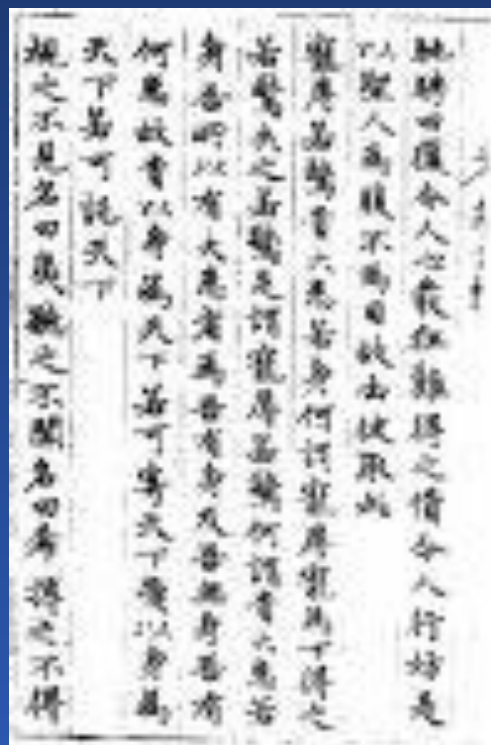 馳騁田獵令人心發狂難得之貨令人行妨是
以聖人為腹不為目故去彼取此
寵辱若驚貴大患若身何謂寵辱寵為下得之
若驚失之若驚是謂寵辱若驚何謂貴大患若
身吾所以有大患者為吾有身及吾無身吾有
何患故貴以身為天下若可寄天下愛以身為
天下若可託天下
視之不見名曰幾聽之不聞名曰希搏之不得